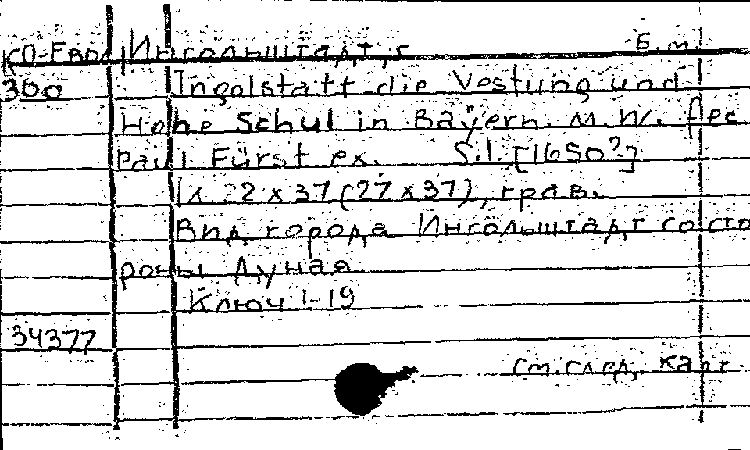 КО-Евр Ингольштадт, г Б.м.
300 Ingolstatt die Vestung und
Hohe Schul in Bayern. M. W. fec
Paul Fürst ex. S.l. [1650?]
1 л. 22 x 37 (27 x 37), грав.
Вид города Ингольштадт со сто
роны Дуная
Ключ 1-19
34377
См. след. карт